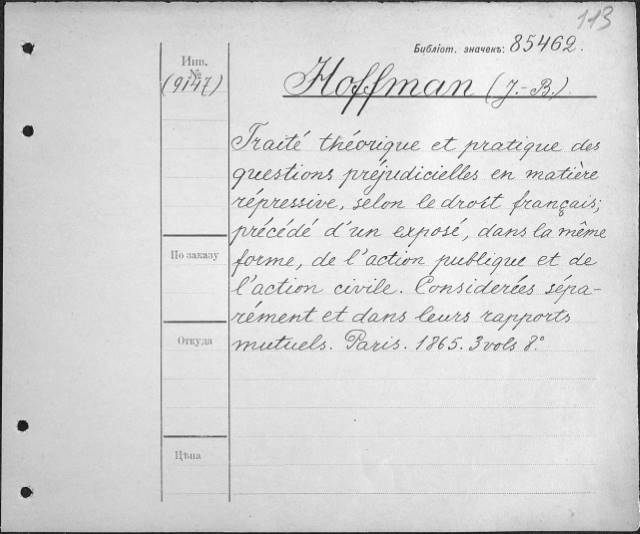 113
Библіот. значекъ: 85462.
Инв.
№
(9147)
Hoffman (J.-B.)
Traité théorique et pratique des
questions préjudicielles en matière
répressive, selon le droit français;
précédé d'un exposé, dans la même
forme, de l'action publique et de
l'action civile. Considerées sépa-
rément et dans leurs rapports
mutuels. Paris. 1865. 3 vols 8.º
По заказу
Откуда
Цѣна